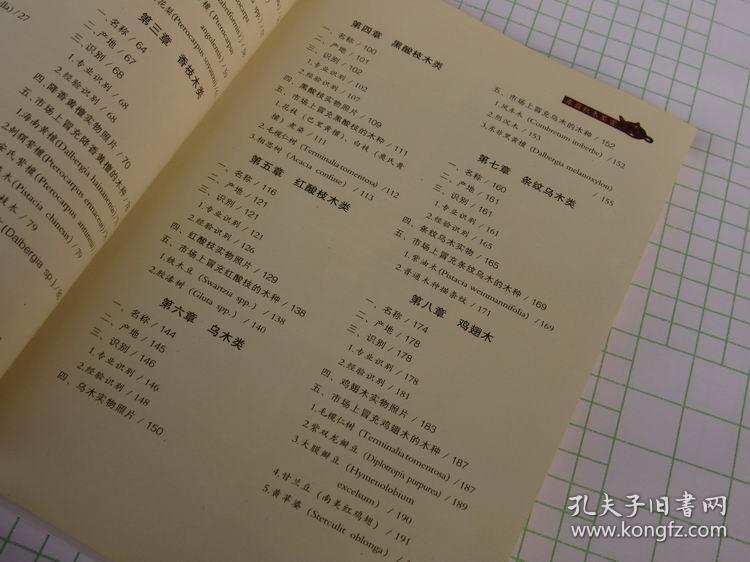 la) / 27
一、名称 / 64
二、产地 / 67
三、识别 / 68
1.专业识别 / 68
2.经验识别 / 68
四、降香黄檀实物照片 / 70
五、市场上冒充降香黄檀的木种
第三章 香枝木类
第四章 黑酸枝木类
一、名称 / 100
二、产地 / 101
三、识别 / 102
1.专业识别 / 102
2.经验识别 / 107
四、黑酸枝实物照片 / 109
五、市场上冒充黑酸枝的木种 / 111
2.毛榄仁树 (Terminalia tomentosa) / 112
3.相思树 (Acacia confise) / 113
第五章 红酸枝木类
一、名称 / 116
二、产地 / 121
三、识别 / 121
1.专业识别 / 121
2.经验识别 / 126
四、红酸枝实物照片 / 129
五、市场上冒充红酸枝的木种 / 138
1.铁木豆 (Swartzia spp.) / 138
2.胶漆树 (Gluta spp.) / 140
第六章 乌木类
一、名称 / 144
二、产地 / 145
三、识别 / 146
1.专业识别 / 146
2.经验识别 / 148
四、乌木实物照片 / 150
五、市场上冒充乌木的木种 / 152
1.风车木 (Combretum imberbe) / 152
2.阴沉木
3.东非黑黄檀 (Dalbergia melanoxylon)
/ 155
第七章 条纹乌木类
一、名称 / 160
二、产地 / 161
三、识别 / 161
1.专业识别 / 161
2.经验识别 / 165
四、条纹乌木实物 / 165
五、市场上冒充条纹乌木的木种 / 169
1.紫油木 (Pistacia weinmannifolia) / 169
2.普通木种描条纹 / 171
第八章 鸡翅木
一、名称 / 174
二、产地 / 178
三、识别 / 178
1.专业识别 / 178
2.经验识别 / 181
四、鸡翅木实物照片 / 183
五、市场上冒充鸡翅木的木种 / 187
1.毛榄仁树 (Terminalia tomentosa) / 187
2.紫双龙瓣豆 (Diplotropis purpurea) / 189
3.大膜瓣豆 (Hymenolobium
excelsum) / 190
4.甘兰豆 (南美红鸡翅) / 191
5.黄苹婆 (Sterculit oblonga) /
孔夫子旧书网
www.kongfz.com